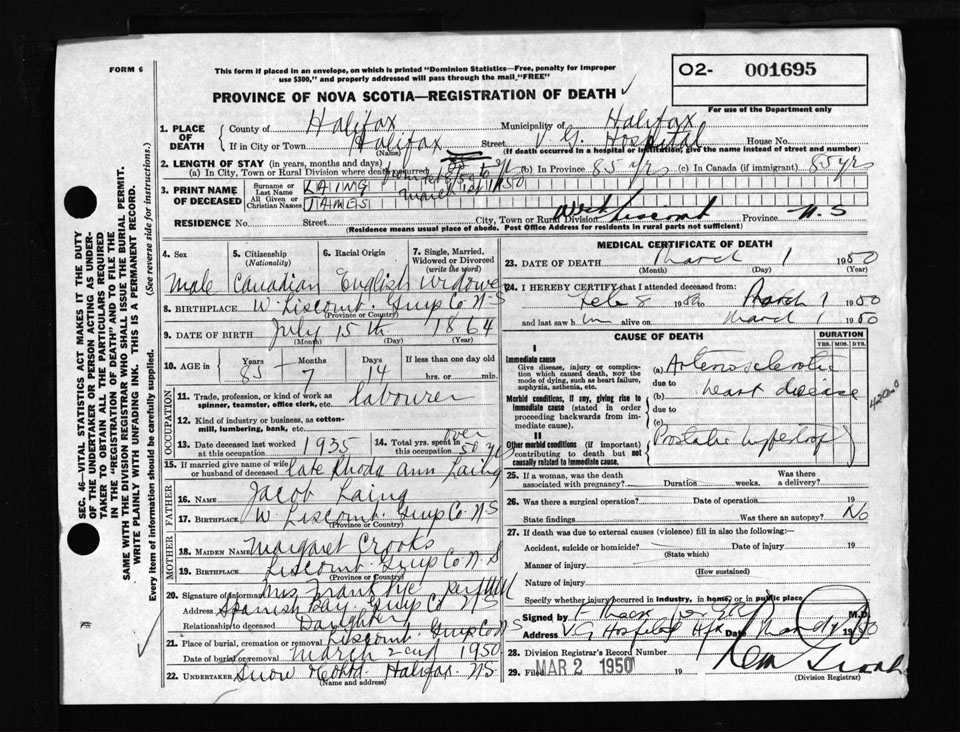 FORM 6
This form if placed in an envelope, on which is printed "Dominion Statistics—Free, penalty for improper
use $300," and properly addressed will pass through the mail, "FREE"
O2- 001695
For use of the Department only
PROVINCE OF NOVA SCOTIA—REGISTRATION OF DEATH
1. PLACE OF DEATH
County of Halifax Municipality of Halifax
If in City or Town Halifax Street V. G. Hospital House No.
(Name) (If death occurred in a hospital or institution, give the name instead of street and number)
2. LENGTH OF STAY (in years, months and days)
(a) In City, Town or Rural Division where death occurred (b) In Province 85 yrs (c) In Canada (if immigrant) 85 yrs
3. PRINT NAME OF DECEASED
Surname or Last Name LAING
All Given or Christian Names JAMES
RESIDENCE No. Street City, Town or Rural Division West Liscomb Province N.S
(Residence means usual place of abode. Post Office Address for residents in rural parts not sufficient)
4. Sex 5. Citizenship (Nationality) 6. Racial Origin 7. Single, Married, Widowed or Divorced (write the word)
Male Canadian English Widowe
8. BIRTHPLACE W. Liscomb. Guys Co N.S
(Province or Country)
9. DATE OF BIRTH July 15th 1864
(Month) (Day) (Year)
10. AGE in Years Months Days If less than one day old
85 7 14 hrs. or min.
OCCUPATION
11. Trade, profession, or kind of work as spinner, teamster, office clerk, etc. labourer
12. Kind of industry or business, as cotton-mill, lumbering, bank, etc.
13. Date deceased last worked at this occupation 1935 14. Total yrs. spent in this occupation over 50 yrs
15. If married give name of wife or husband of deceased late Rhoda Ann Laing
FATHER
16. Name Jacob Laing
17. Birthplace W. Liscomb. Guys Co. N.S
(Province or Country)
MOTHER
18. MAIDEN NAME Margaret Crooks
19. Birthplace Liscomb. Guys Co. N.S
(Province or Country)
20. Signature of informant Mrs. Frank Pye per
Address Spanish Bay Guys Co N.S
Relationship to deceased Daughter
21. Place of burial, cremation or removal Liscomb. Guys Co N S
Date of burial or removal March 2nd 1950
22. UNDERTAKER Snow Halifax. N.S
(Name and address)
MEDICAL CERTIFICATE OF DEATH
23. DATE OF DEATH March 1 1950
(Month) (Day) (Year)
24. I HEREBY CERTIFY that I attended deceased from:
Feb 8 1950 to March 1 1950
and last saw h im alive on March 1 1950
CAUSE OF DEATH DURATION
YRS. MOS. DYS.
I
Immediate cause
Give disease, injury or complication which caused death, NOT the mode of dying, such as heart failure, asphyxia, asthenia, etc.
Morbid conditions, if any, giving rise to immediate cause (stated in order proceeding backwards from immediate cause).
II
Other morbid conditions (if important) contributing to death but not causally related to immediate cause.
(a) Arteriosclerotic
due to
(b) heart disease
due to
(c)
Prostatic hypertrophy
25. If a woman, was the death associated with pregnancy? Duration weeks. Was there a delivery?
26. Was there a surgical operation? Date of operation 19
State findings Was there an autopsy? No
27. If death was due to external causes (violence) fill in also the following:—
Accident, suicide or homicide? Date of injury 19
(State which)
Manner of injury
(How sustained)
Nature of injury
Specify whether injury occurred in industry, in home, or in public place
Signed by M.D.
Address V.G Hospital Hfx Date March 1950
28. Division Registrar's Record Number
29. Filed MAR 2 1950 19
(Division Registrar)
SEC. 46—VITAL STATISTICS ACT MAKES IT THE DUTY
OF THE UNDERTAKER OR PERSON ACTING AS UNDER-
TAKER TO OBTAIN ALL THE PARTICULARS REQUIRED
IN THE "REGISTRATION OF DEATH" AND TO FILE THE
SAME WITH THE DIVISION REGISTRAR WHO SHALL ISSUE THE BURIAL PERMIT.
WRITE PLAINLY WITH UNFADING INK. THIS IS A PERMANENT RECORD.
Every item of information should be carefully supplied. (See reverse side for instructions.)